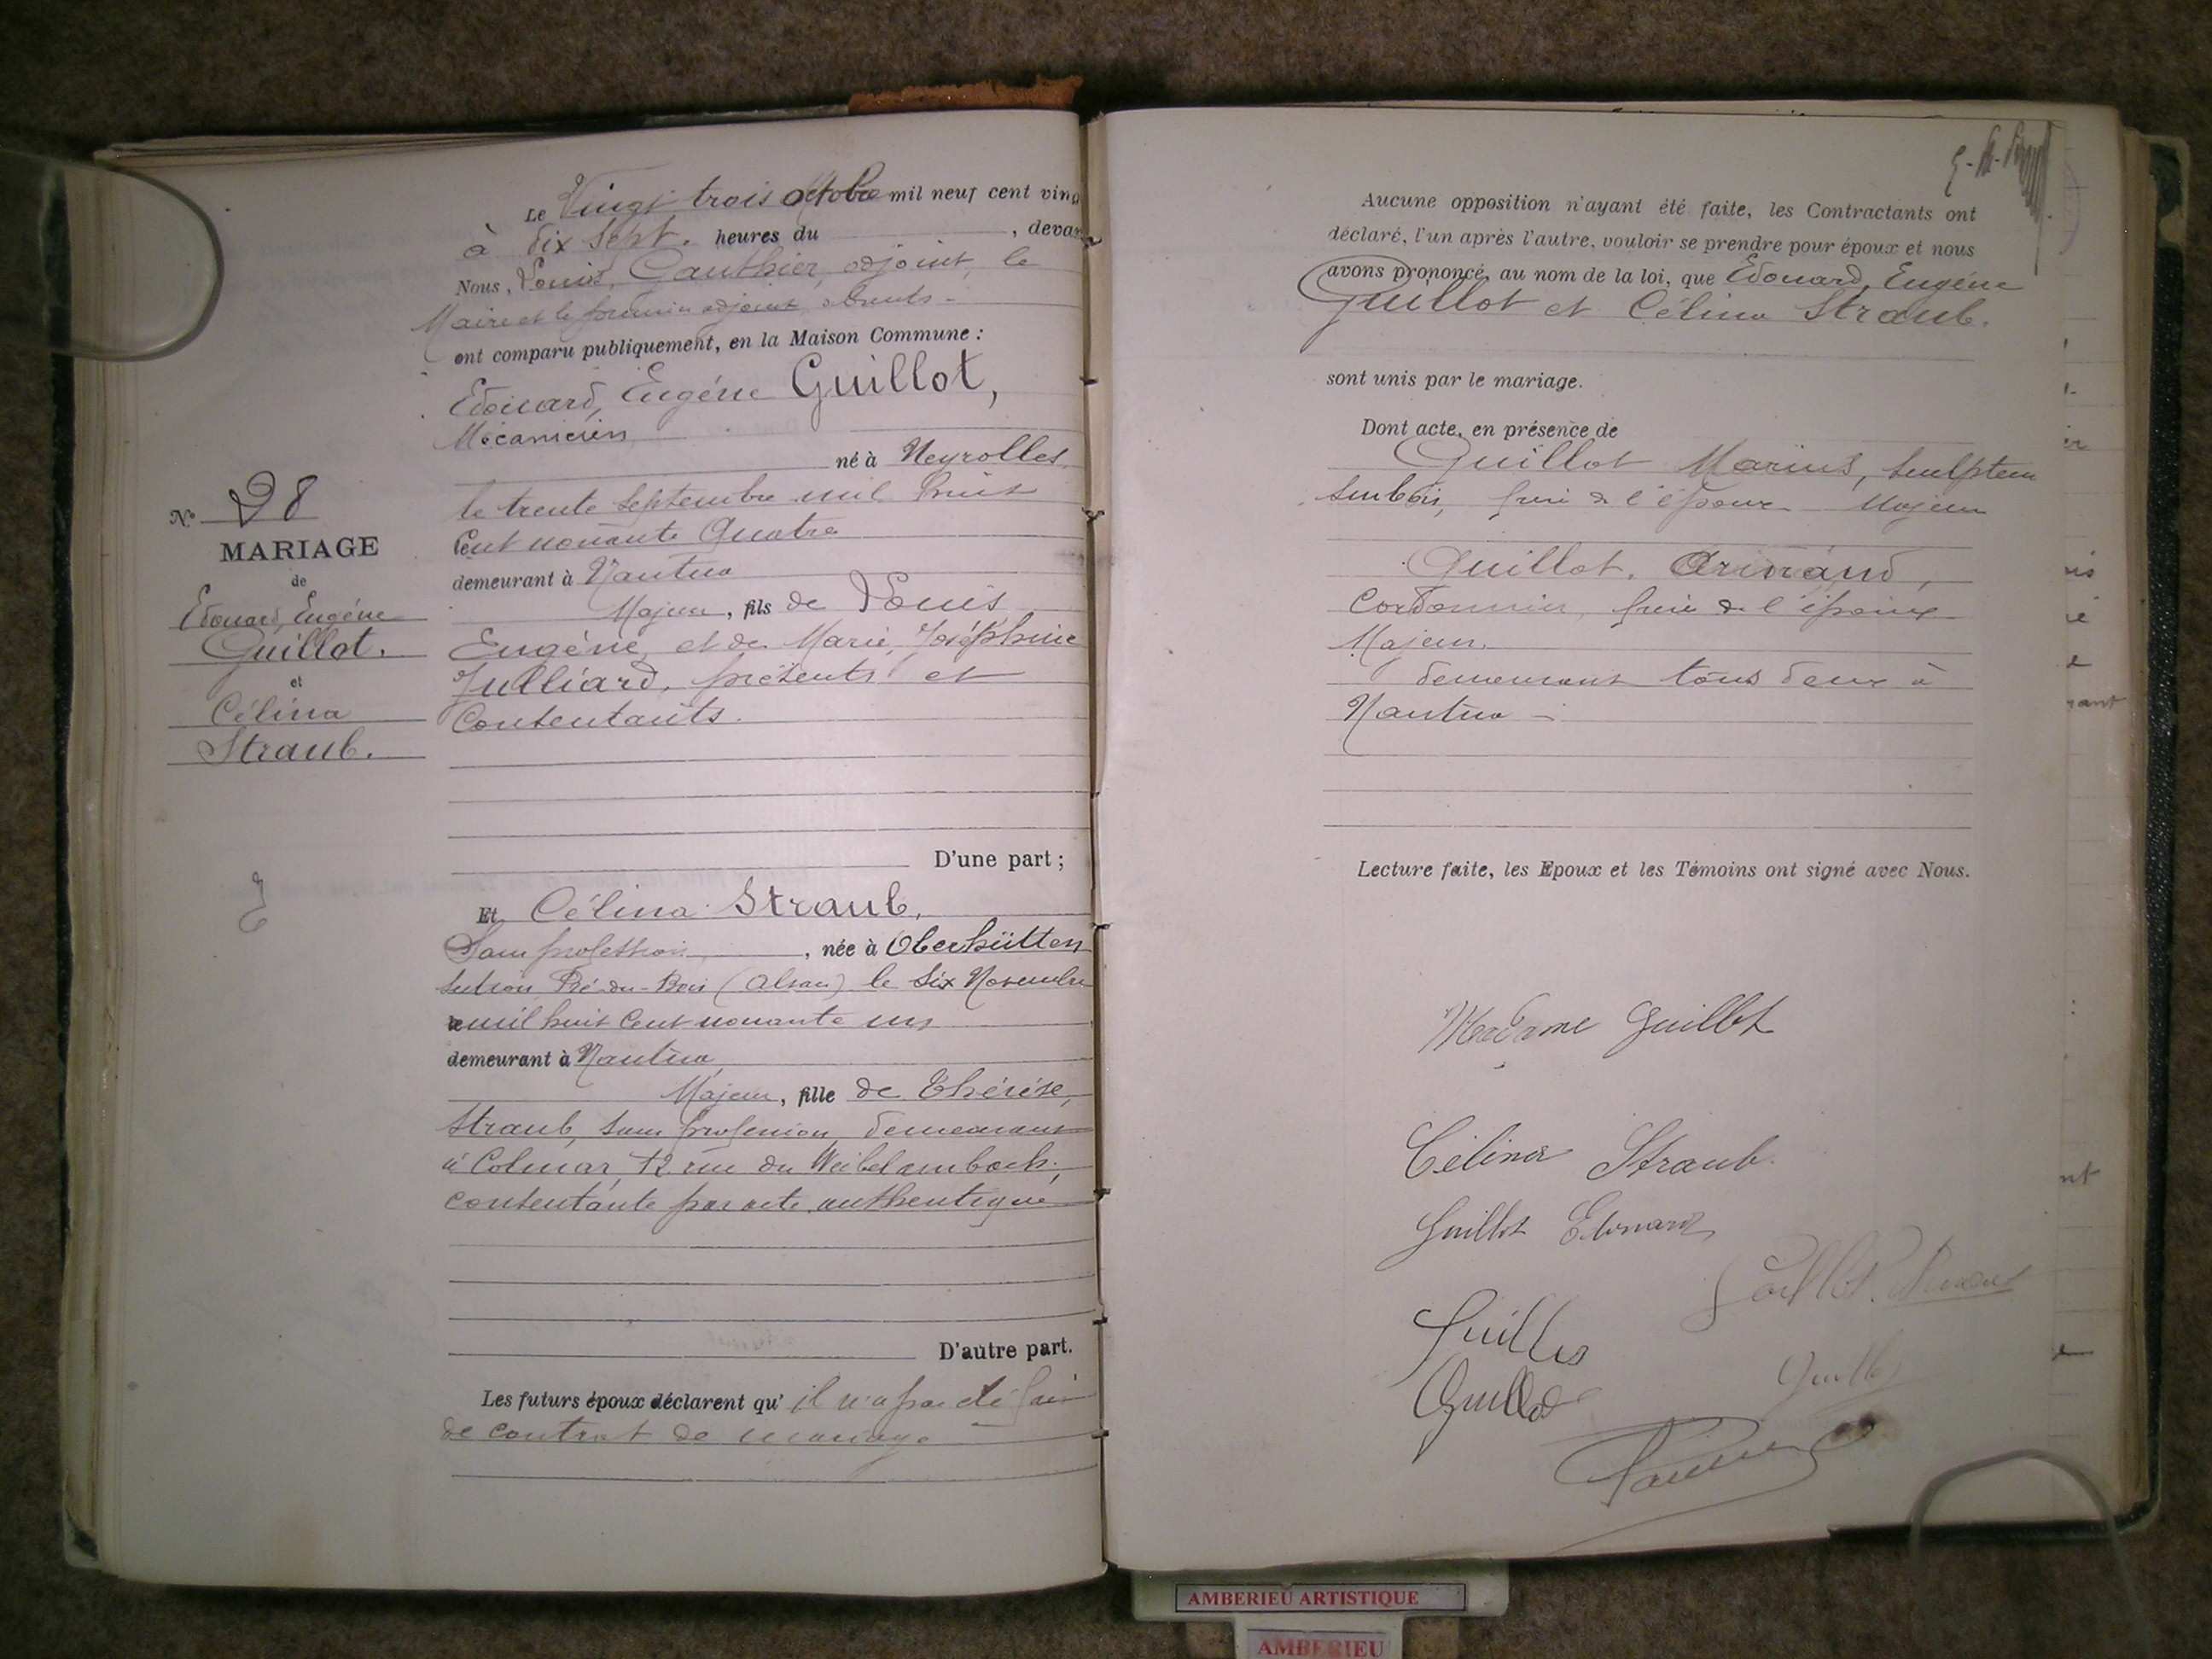 Le Vingt trois octobre mil neuf cent ving
à dix sept. heures du , devan
Nous, Louis, Gauthier, adjoint, le
Maire et le premier adjoint absents -
ont comparu publiquement, en la Maison Commune :
Edouard, Eugéne Guillot,
Mécanicien
né à Neyrolles
le trente Septembre mil huit
Cent nonante Quatre
demeurant à Nantua
Majeur, fils de Louis
Eugéne, et de Marie, Joséphine
Julliard, présents et
Consentants.
D'une part ;
N° 28
MARIAGE
de
Edouard, Eugéne
Guillot.
et
Célina
Straub.
Et Célina Straub,
Sans profession , née à Oberhütten
Pré-du-Bois (Alsace) le Six Novembre
mil huit Cent nonante un
demeurant à Nantua
Majeur, fille de Thérése,
Straub, sans profession, demeurant
à Colmar, 12 rue du
consentante par acte authentique
D'autre part.
Les futurs époux déclarent qu' il n'a pas été fait
de contrat de mariage
Aucune opposition n'ayant été faite, les Contractants ont
déclaré, l'un après l'autre, vouloir se prendre pour époux et nous
avons prononcé, au nom de la loi, que Edouard, Eugéne
Guillot et Célina Straub.
sont unis par le mariage.
Dont acte, en présence de
Guillot Marius, sculpteur
sur bois, frère de l'époux Majeur
Guillot. Armand,
Cordonnier, frère de l'époux
Majeur.
demeurant tous deux à
Nantua -
Lecture faite, les Epoux et les Témoins ont signé avec Nous.
Madame Guillot
Célina Straub
Guillot Edouard
Guillot Armand
Guillot
Guillot
Guillot
AMBERIEU ARTISTIQUE
AMBERIEU